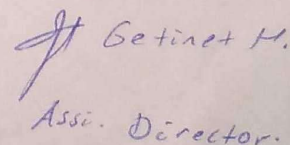 Getinet H.
Assi. Director.